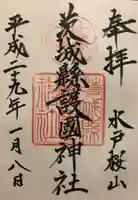 奉拝
水戸桜山
茨城縣護國神社
平成二十九年一月八日